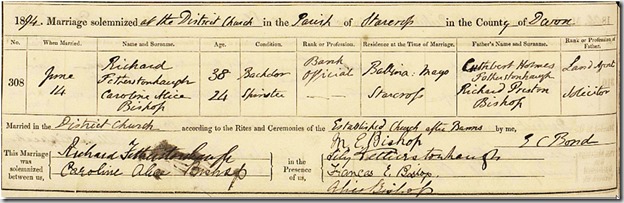 1894. Marriage solemnized at the District Church in the Parish of Starcross in the County of Devon
No. When Married. Name and Surname. Age. Condition. Rank or Profession. Residence at the Time of Marriage. Father's Name and Surname. Rank or Profession of Father.
308 June 14 Richard Fetherstonhaugh 38 Bachelor Bank Official Ballina: Mayo Cuthbert Holmes Fetherstonhaugh Land Agent
Caroline Alice Bishop 24 Spinster — Starcross Richard Preston Bishop Solicitor
Married in the District Church according to the Rites and Ceremonies of the Established Church after Banns by me,
This Marriage was solemnized between us,
Richard Fetherstonhaugh
Caroline Alice Bishop
in the Presence of us,
M. E. Bishop
Fetherstonhaugh
Frances E. Bishop
Alice Bishop
E C Bond